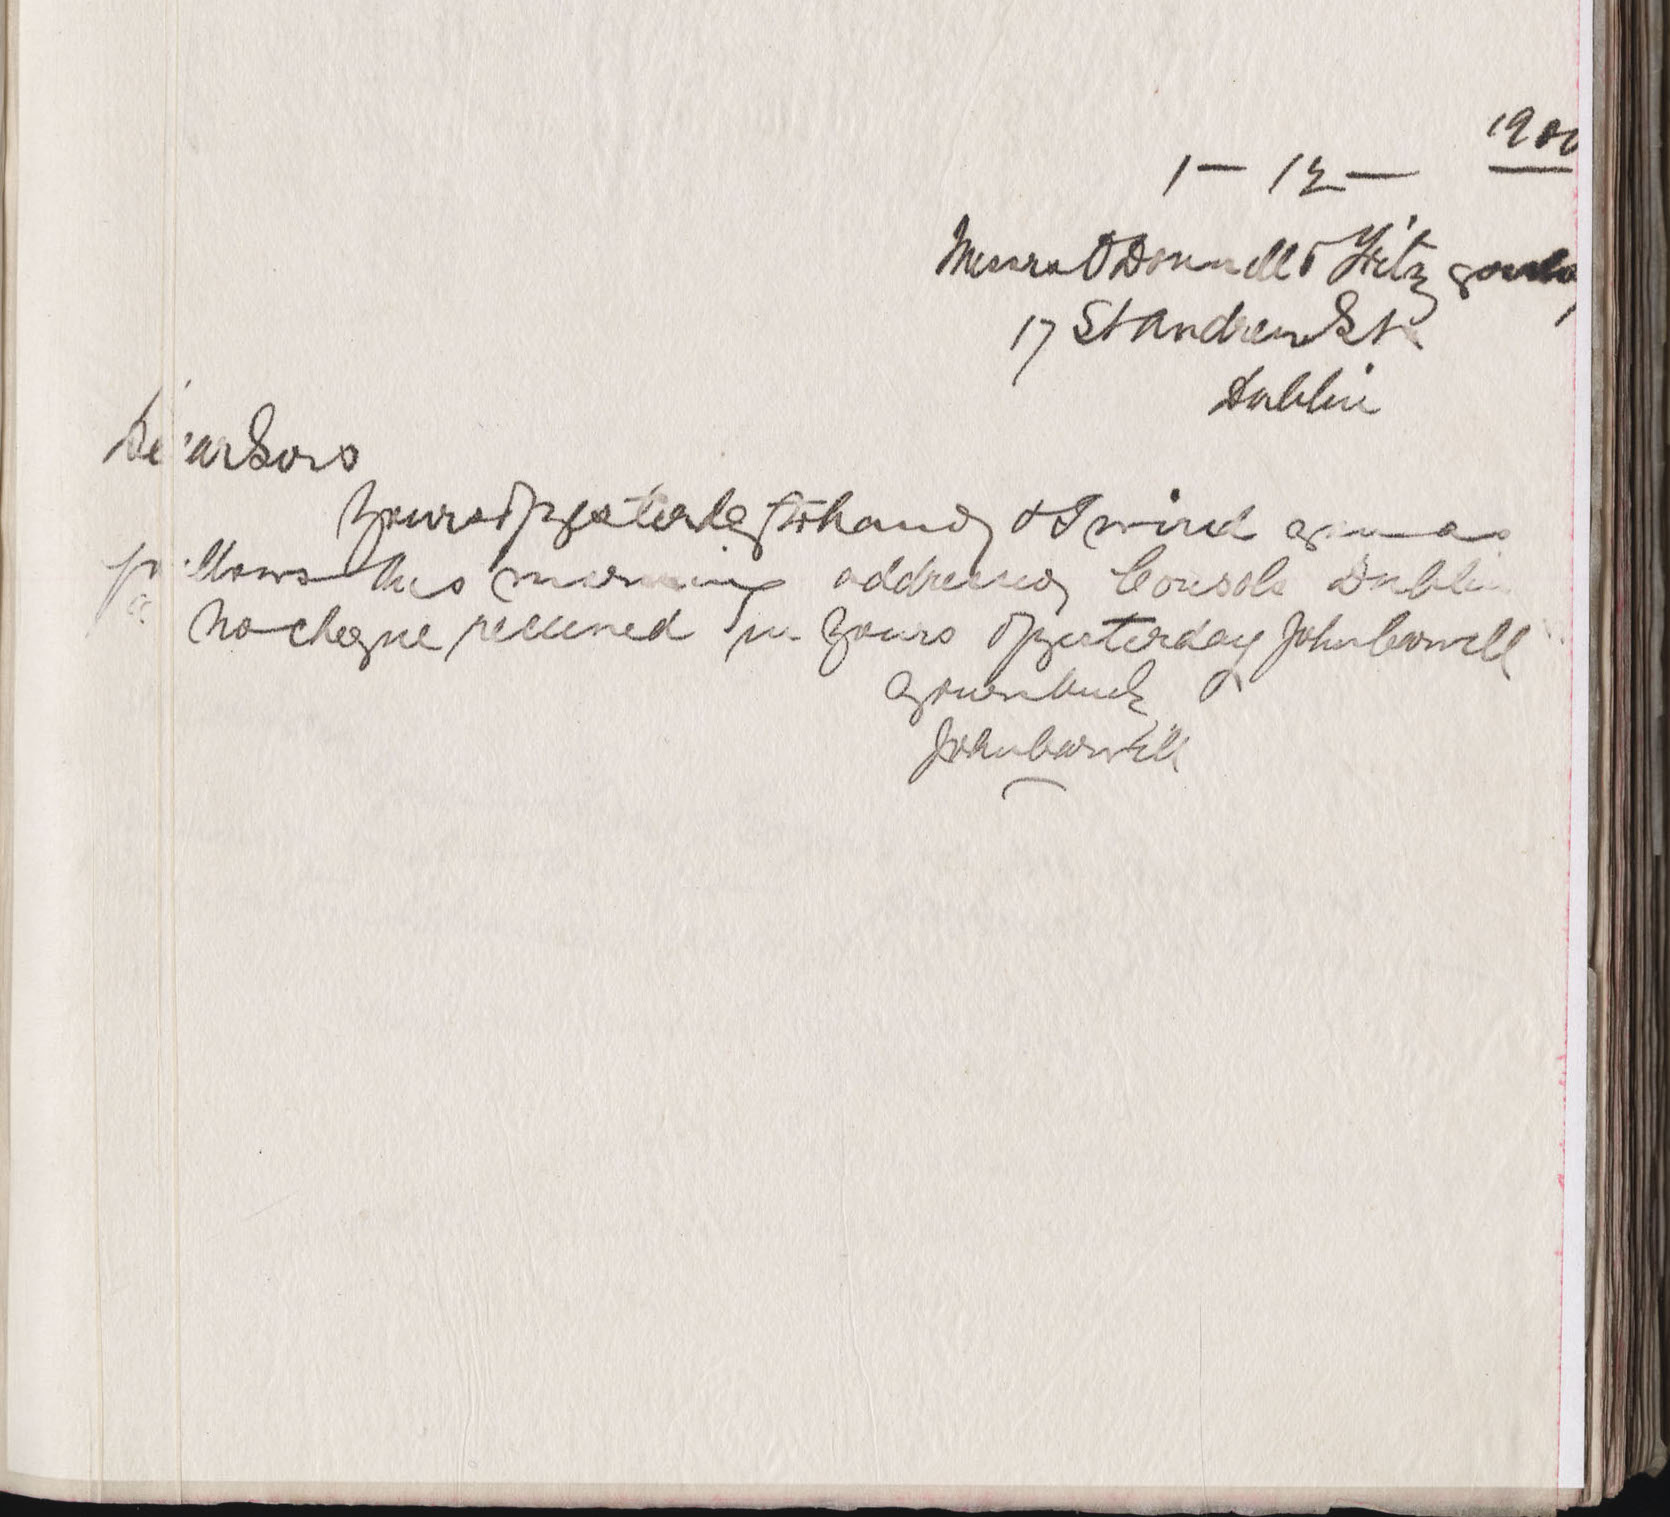 1 - 12 - 1900
Messrs O'Donnell & Fitzgerald,
17 St Andrew St
Dublin
Dear Sirs
Yours of yesterday to hand, & I wired you as
follows this morning addressed, Consols Dublin
No cheque received in yours of yesterday John
yours truly
John